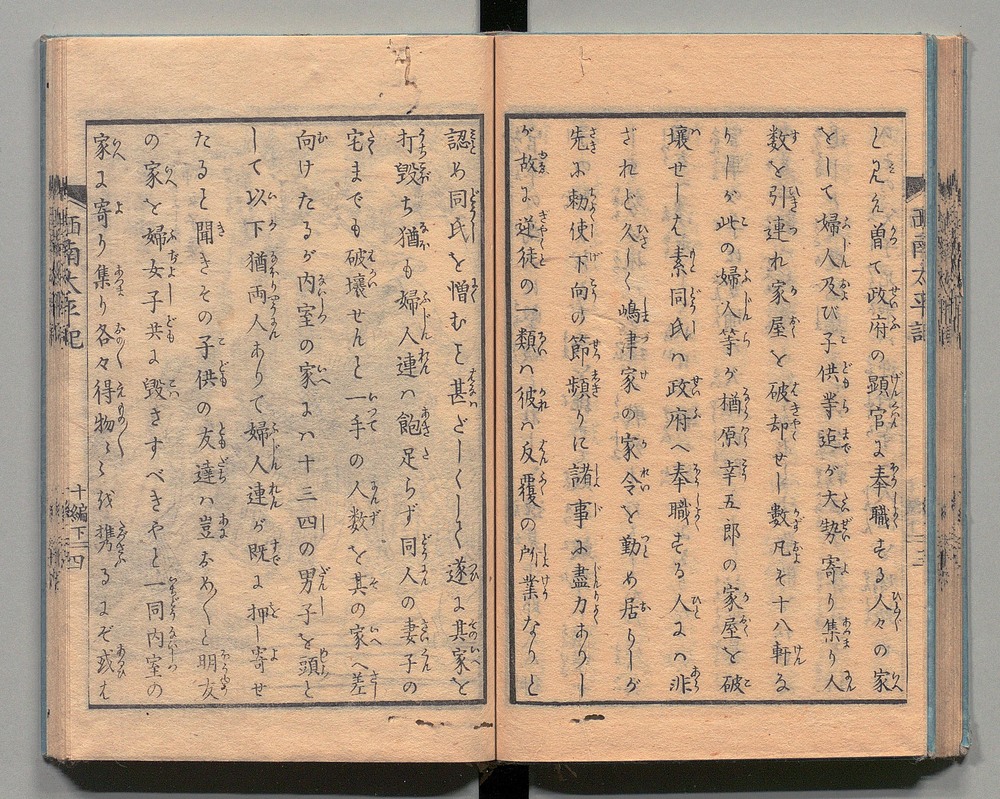 しみえ曽て政府の顕官に奉職する人々の家
をして婦人及び子供等迄が大勢寄り集り人
数を引連れ家屋を破却せし数凡そ十八軒な
りしが此の婦人等が楢原幸五郎の家屋を破
壊せしは素同氏ハ政府へ奉職する人にハ非
ざれど久しく嶋津家の家令を勤め居りしが
先に勅使下向の節頻りに諸事に盡力ありし
が故に逆徒の一類ハ彼ハ反覆の所業なりと
認め同氏を憎むと甚ざしくして遂に其家を
打毀ち猶も婦人連ハ飽足らず同人の妻子の
宅までも破壊せんと一手の人数を其の家へ差
向けたるが内室の家にハ十三四の男子を頭と
して以下猶両人ありて婦人連が既に押し寄せ
たると聞きその子供の友達ハ豈おめ〳〵と朋友
の家を婦女子共に毀さすべきやと一同内室の
家に寄り集り各々得物〳〵を携るにぞ或は
西南太平記
十編下
四
西南太平記